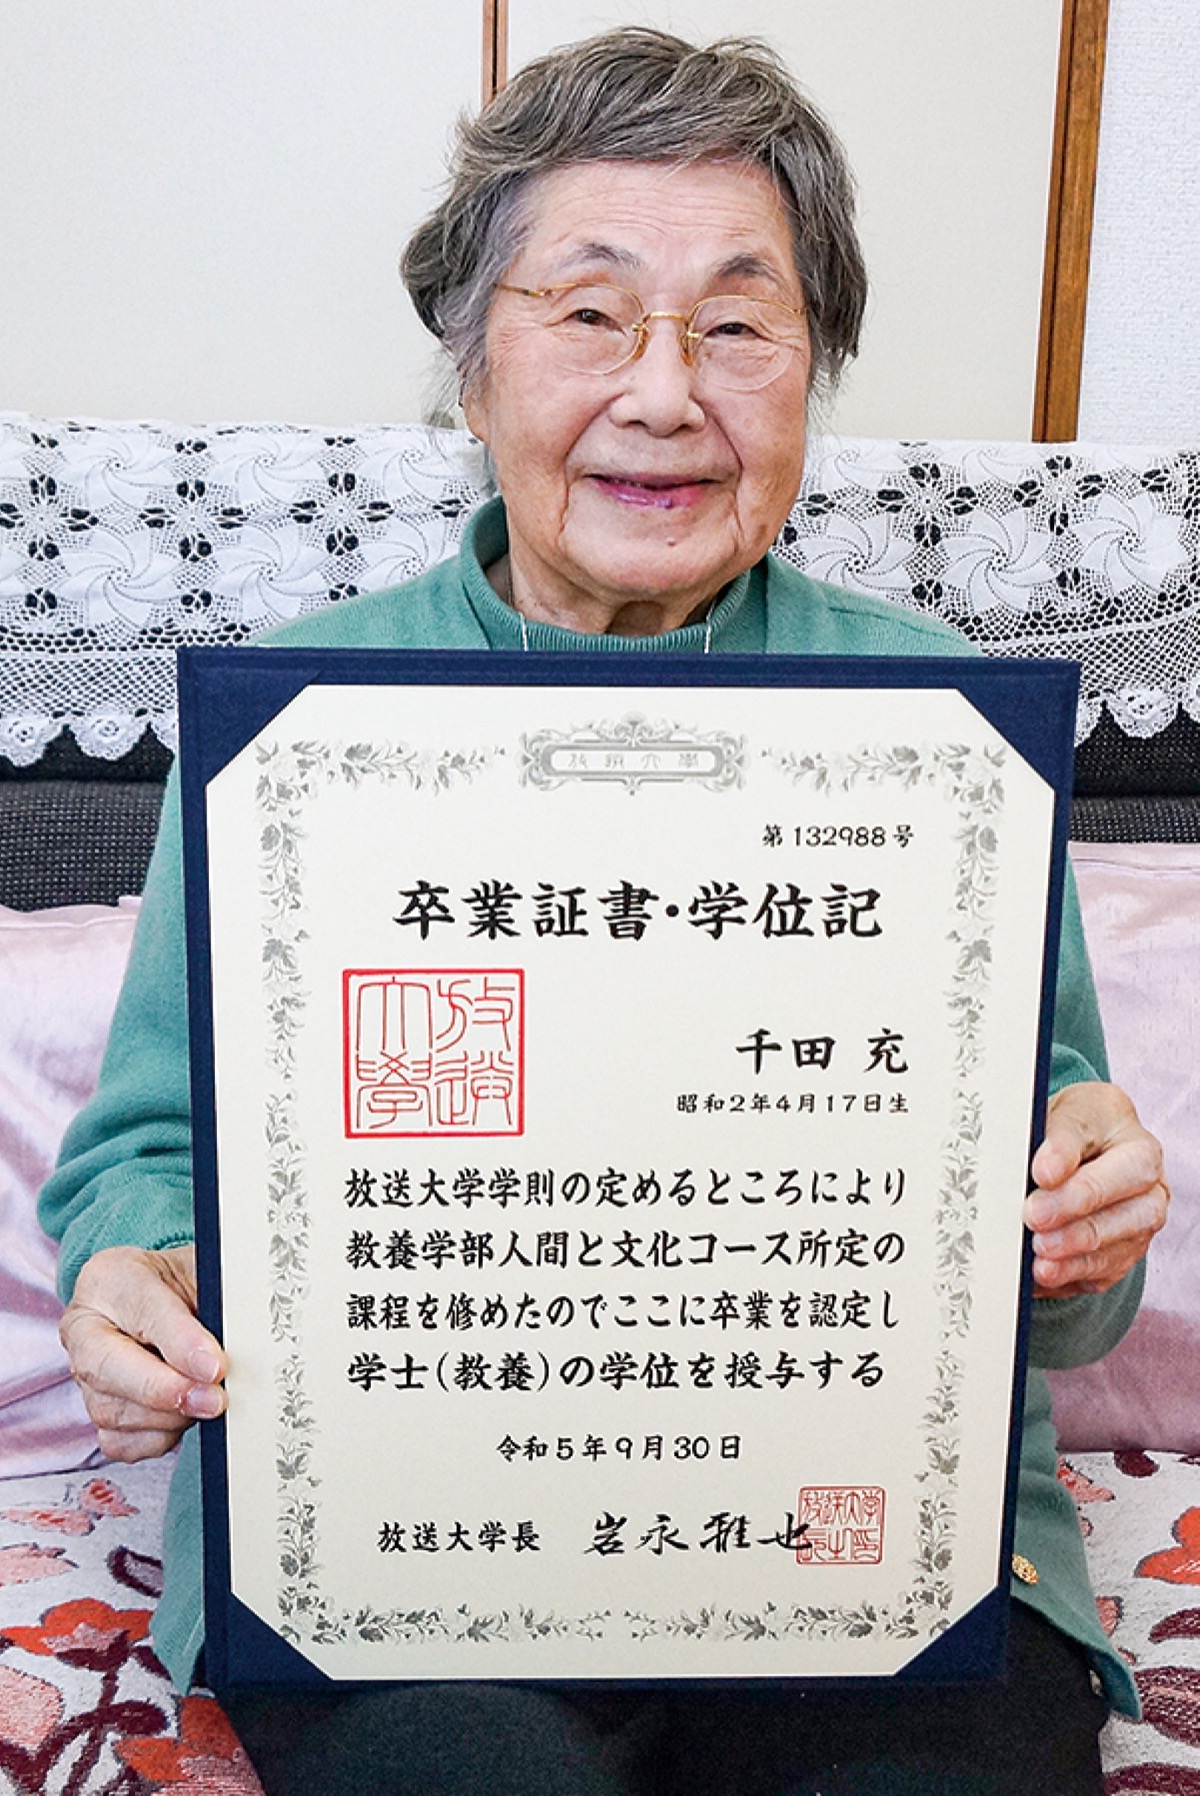 放送大學
第132988号
卒業証書・学位記
放送大學
千田 充
昭和2年4月17日生
放送大学学則の定めるところにより
教養学部人間と文化コース所定の
課程を修めたのでここに卒業を認定し
学士(教養)の学位を授与する
令和5年9月30日
放送大学長 岩永雅也
放送大学長之印